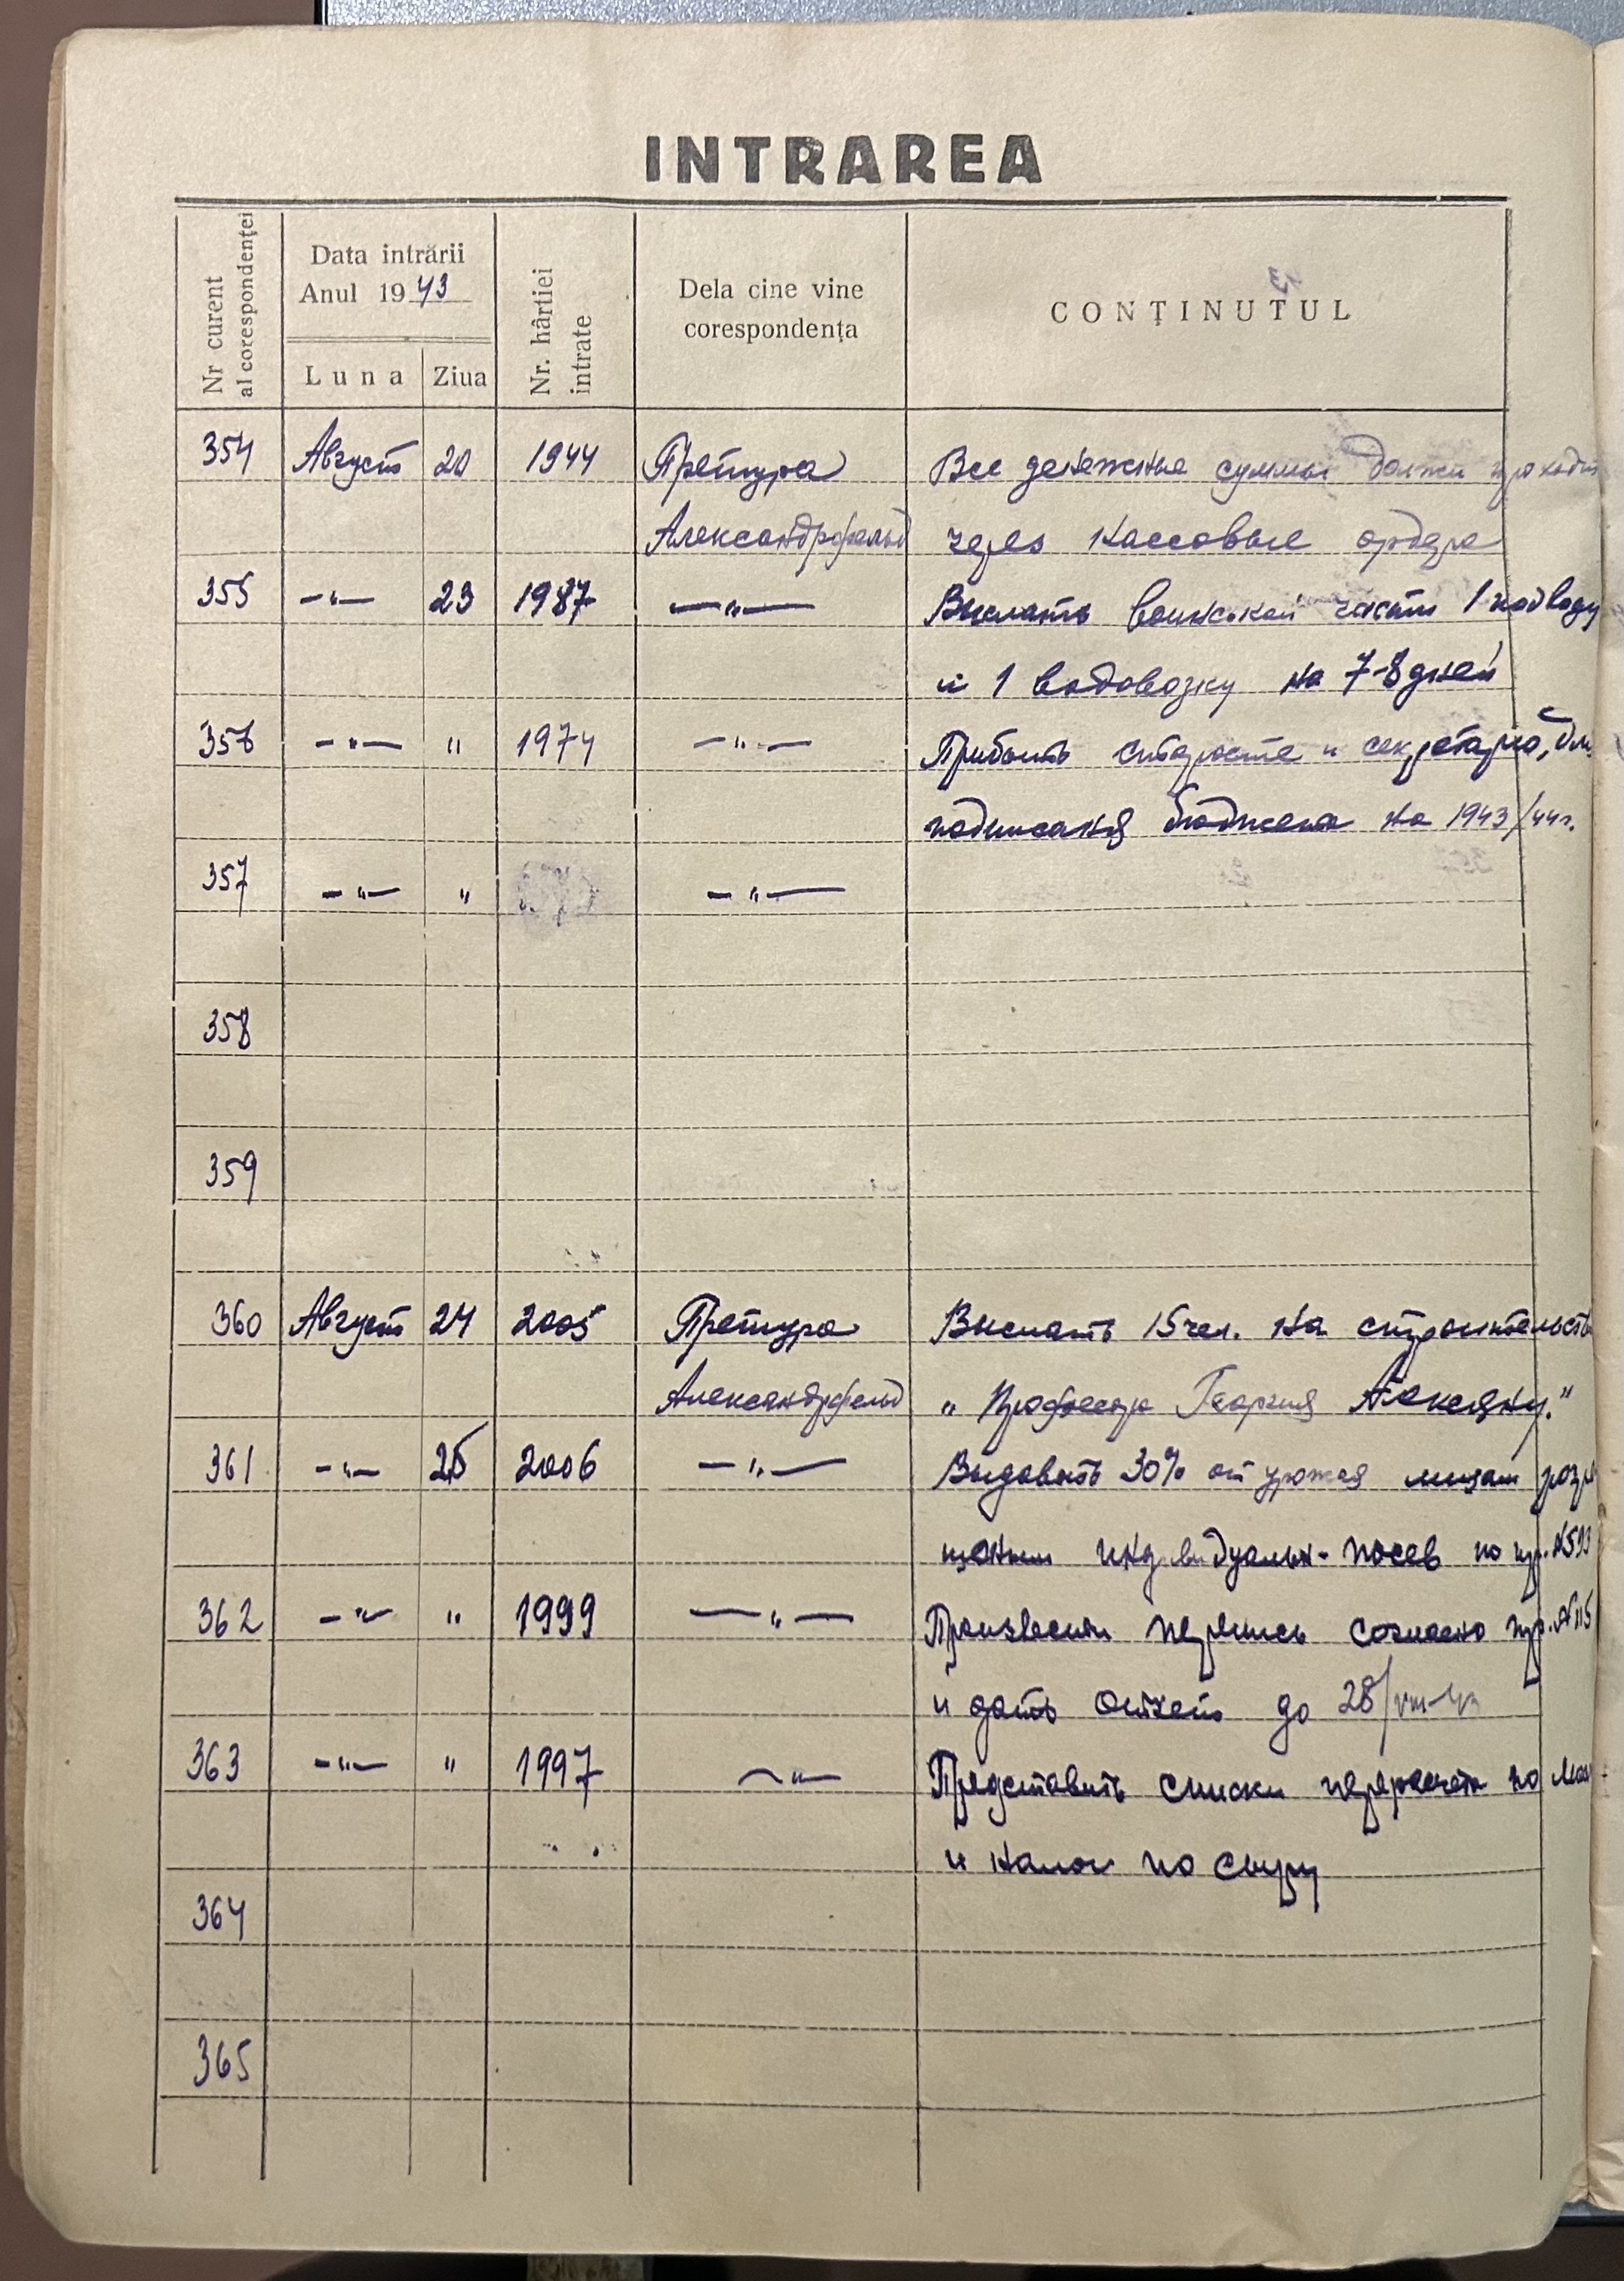 INTRAREA
Nr curent al corespondenței
Data intrării
Anul 1943
Luna Ziua
Nr. hârtiei intrate
Dela cine vine corespondența
CONȚINUTUL
354 Август 20 1944 Претура Все денежные суммы должн проходит
Александрфельд через кассовые ордера
355 —"— 23 1987 —"— Выслать воинской части 1 подводу
и 1 водовозку на 7-8 дней
356 —"— " 1974 —"— Прибыть старосте и секретарю, для
подписания бюджета на 1943/44г.
357 —"— " —"—
358
359
360 Август 24 2005 Претура Выслать 15 чел. на строительств
Александрфельд "Професора Георгия Алексяну."
361 —"— 25 2006 —"— Выдавать 30% от урожая лицам
индивидуальн- посев по пр. №593
362 —"— " 1999 —"— Произвести перепись согласно пр. №115
и дать отчет до 28/VIII-43
363 —"— " 1997 —"— Представить списки перерасчета по
и налог по сыру
364
365